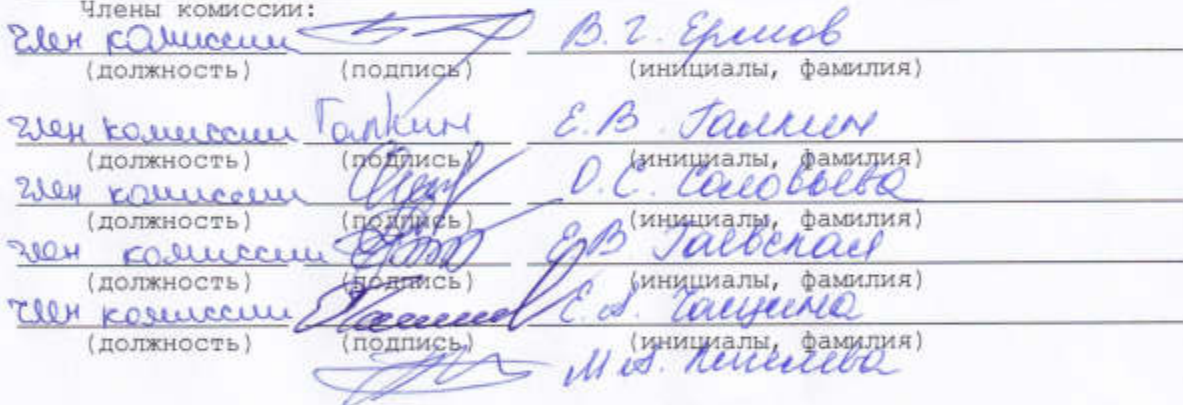 Члены комиссии:
член комиссии В.Г. Ермов
(должность) (подпись) (инициалы, фамилия)
член комиссии Галкин Е.В. Галкин
(должность) (подпись) (инициалы, фамилия)
член комиссии О.С. Соловьева
(должность) (подпись) (инициалы, фамилия)
член комиссии Е.В. Гаевская
(должность) (подпись) (инициалы, фамилия)
член комиссии Е.А.
(должность) (подпись) (инициалы, фамилия)
М.А.